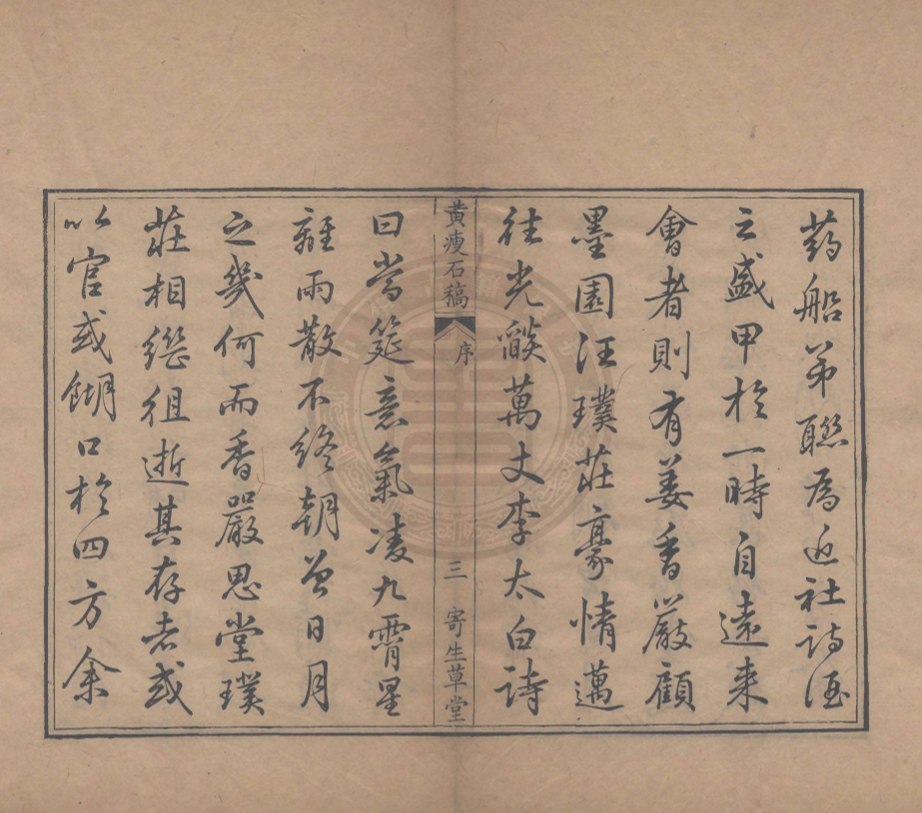 葯船弟聯為近社詩酒
之盛甲扵一時自遠来
會者則有姜香巖顧
墨園汪璞莊豪情邁
往光燄萬丈李太白詩
黄瘦石稿
序
三
寄生草堂
曰當筵意氣凌九霄星
離雨散不終朝曾日月
之幾何而香巖思堂璞
莊相繼徂逝其存者或
以官或餬口扵四方余